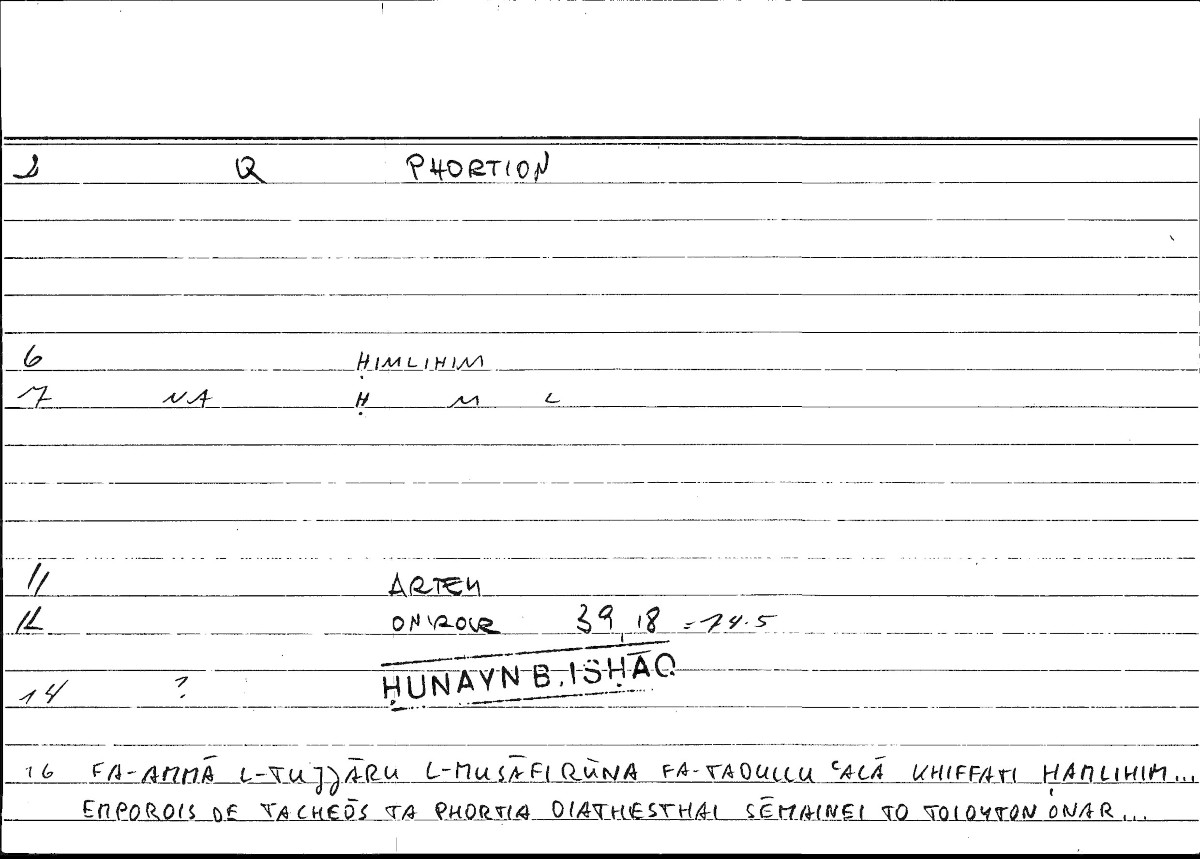 2 Q PHORTION
6 ḤIMLIHIM
7 NA Ḥ M L
11 ARTEM
12 ONIROCR 39,18 = 74.5
14 ? ḤUNAYN B. ISḤĀQ
16 FA-AMMĀ L-TUJJĀRU L-MUSĀFIRŪNA FA-TADULLU ʿALĀ KHIFFATI ḤAMLIHIM...
EMPOROIS DE TACHEŌS TA PHORTIA DIATHESTHAI SĒMAINEI TO TOIOYTON ONAR...